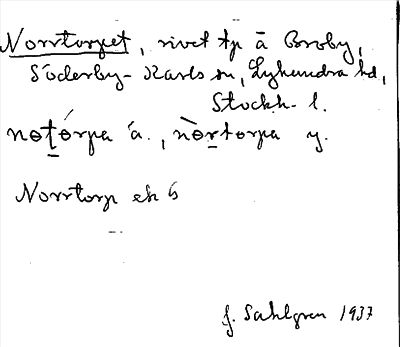 Norrtorpet, rivet tp å Broby,
Söderby-Karls sn, Lyhundra hd,
Stockh. l.
nɵṯórpa ä., nɵ̀ṟtorpa y.
Norrtorp ek 6
J. Sahlgren 1937